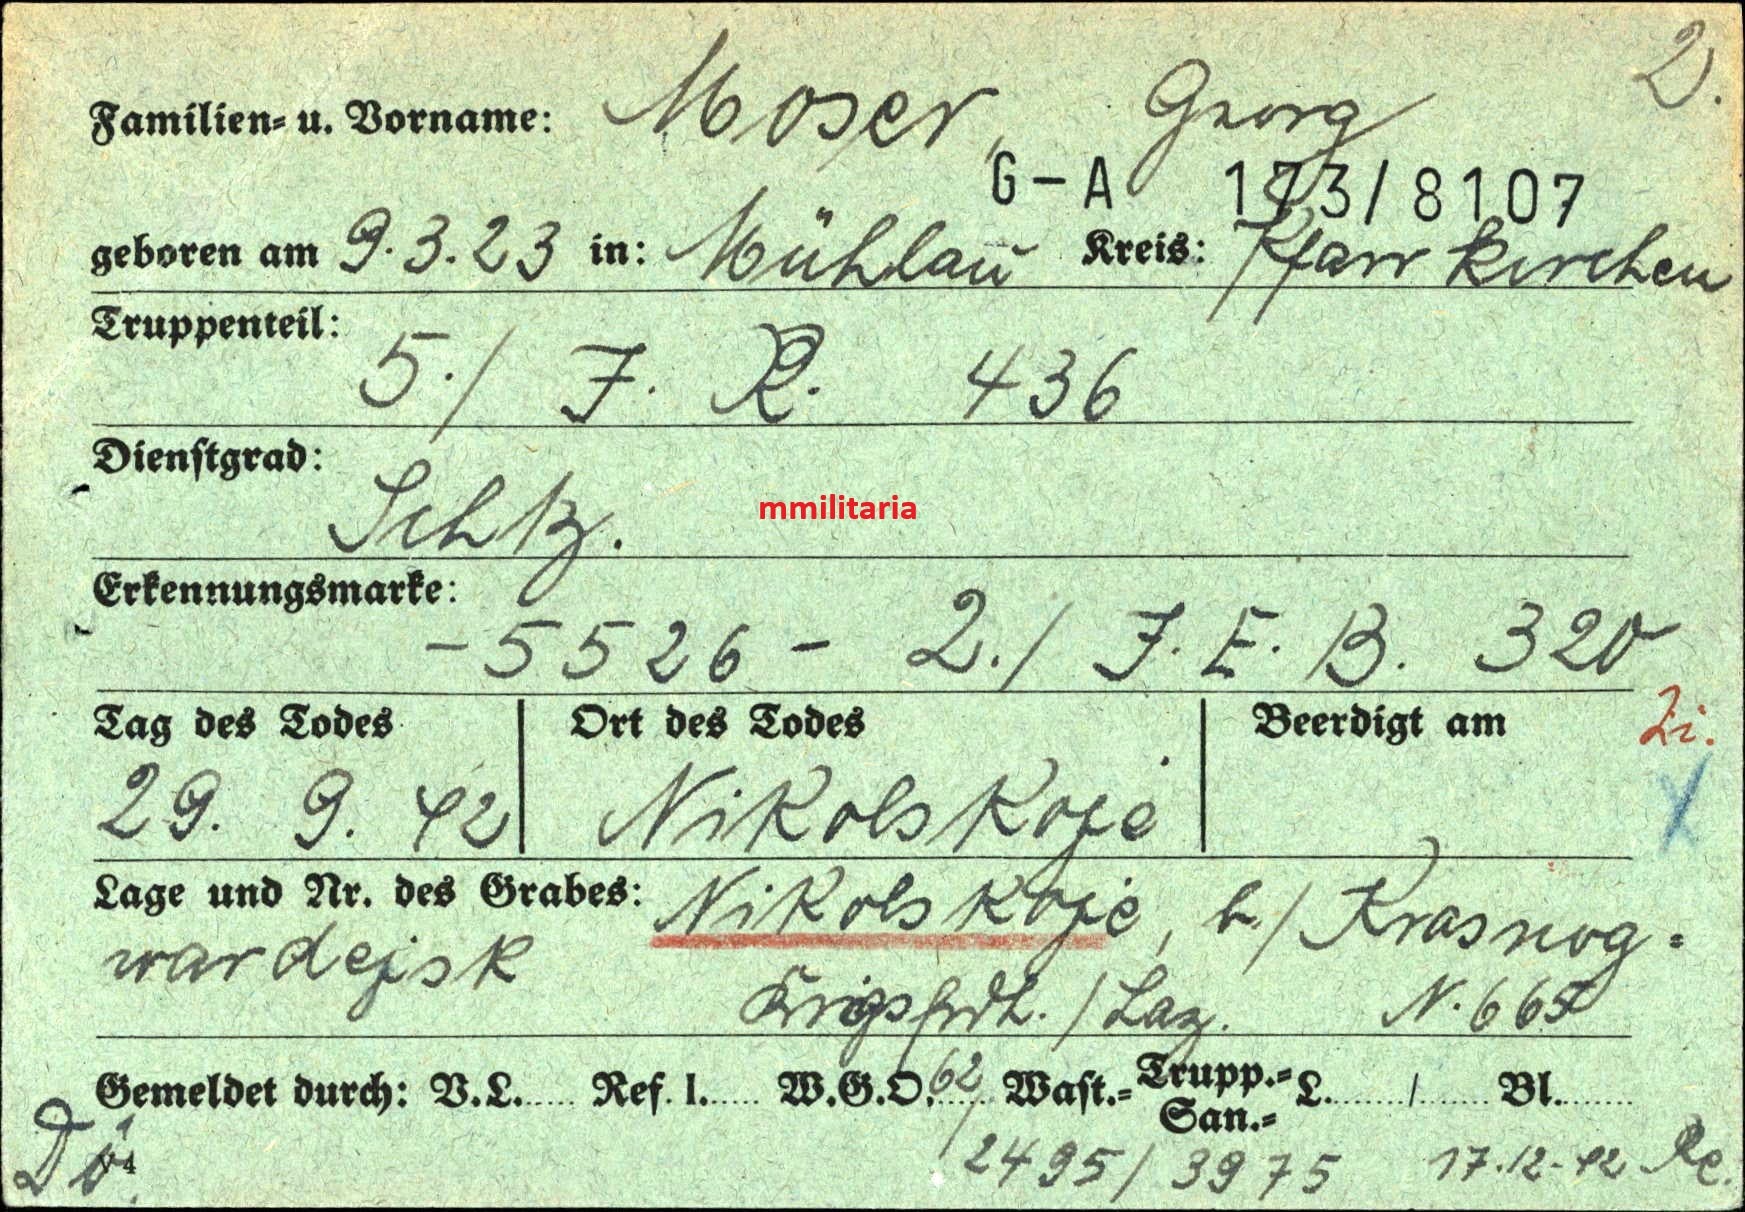 2.
Familien- u. Vorname: Moser, Georg
G-A 173/8107
geboren am 9.3.23 in: Mühlau Kreis: Pfarrkirchen
Truppenteil: 5./ J. R. 436
Dienstgrad: Schtz.
mmilitaria
Erkennungsmarke: -5526- 2./ J. E. B. 320
Tag des Todes Ort des Todes Beerdigt am Zi.
29. 9. 42 Nikolskoje
Lage und Nr. des Grabes: Nikolskoje, b./ Krasnog-
wardejsk
Krigsfrdh. / Laz. N. 665
Gemeldet durch: V.L..... Ref. I..... W.G.O. 62/ Wast.- Trupp.- San.- L......../....... Bl........
Dö V4 2495/3975 17.12.42 Re.